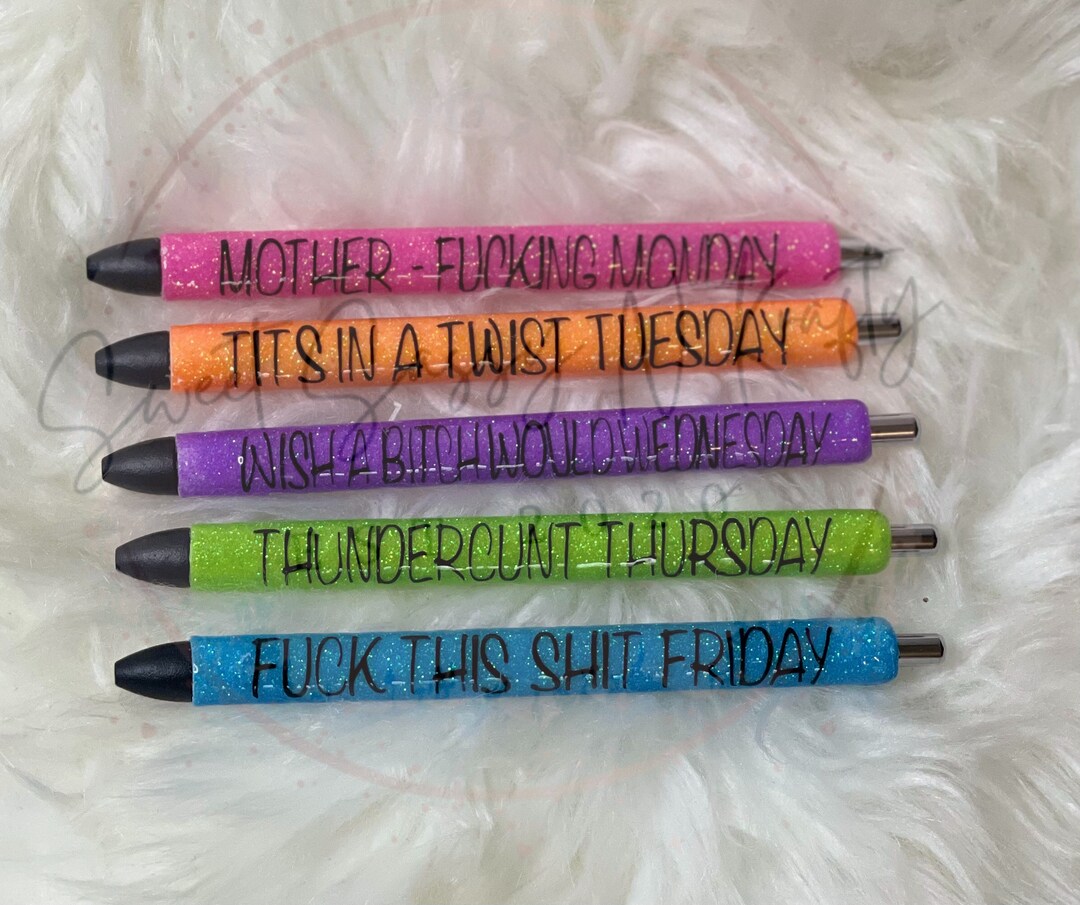 MOTHER - FUCKING MONDAY
TITS IN A TWIST TUESDAY
WISH A BITCH WOULD WEDNESDAY
THUNDERCUNT THURSDAY
FUCK THIS SHIT FRIDAY
Sweet Sassy N Krafty